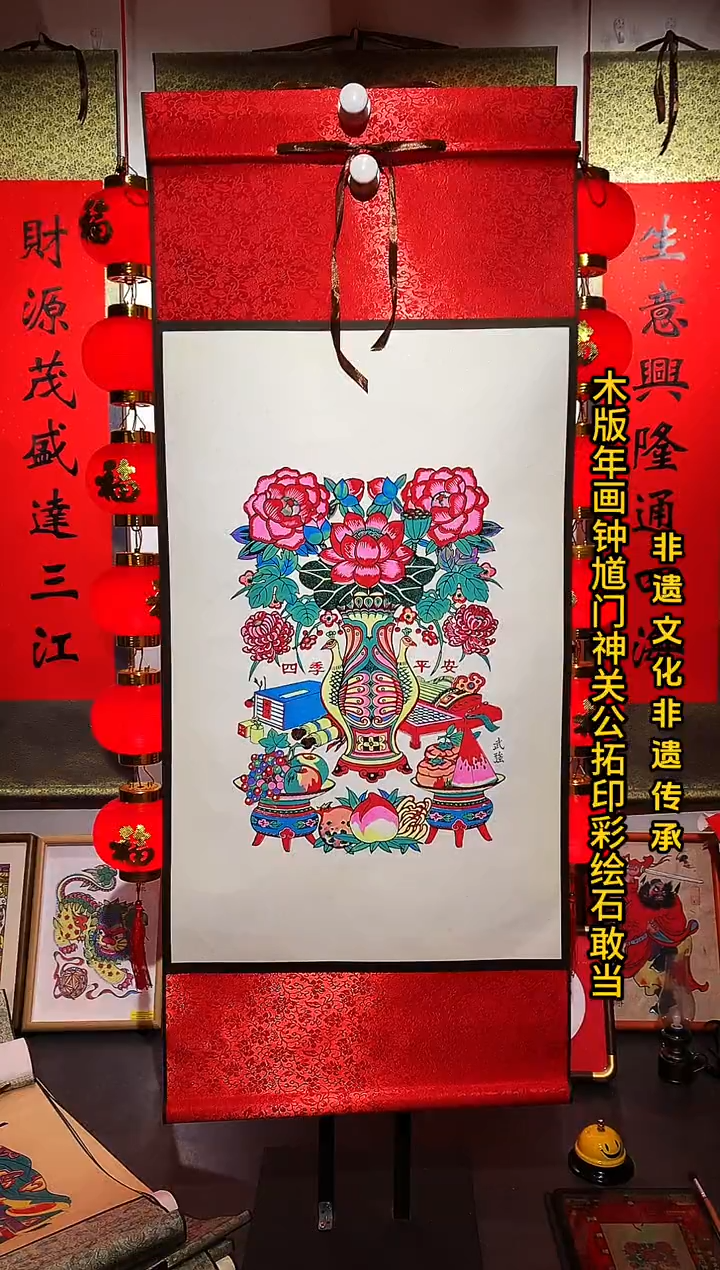 生意興隆通四海
財源茂盛達三江
福
福
福
四季平安
武强
木版年画钟馗门神关公拓印彩绘石敢当
非遗文化非遗传承